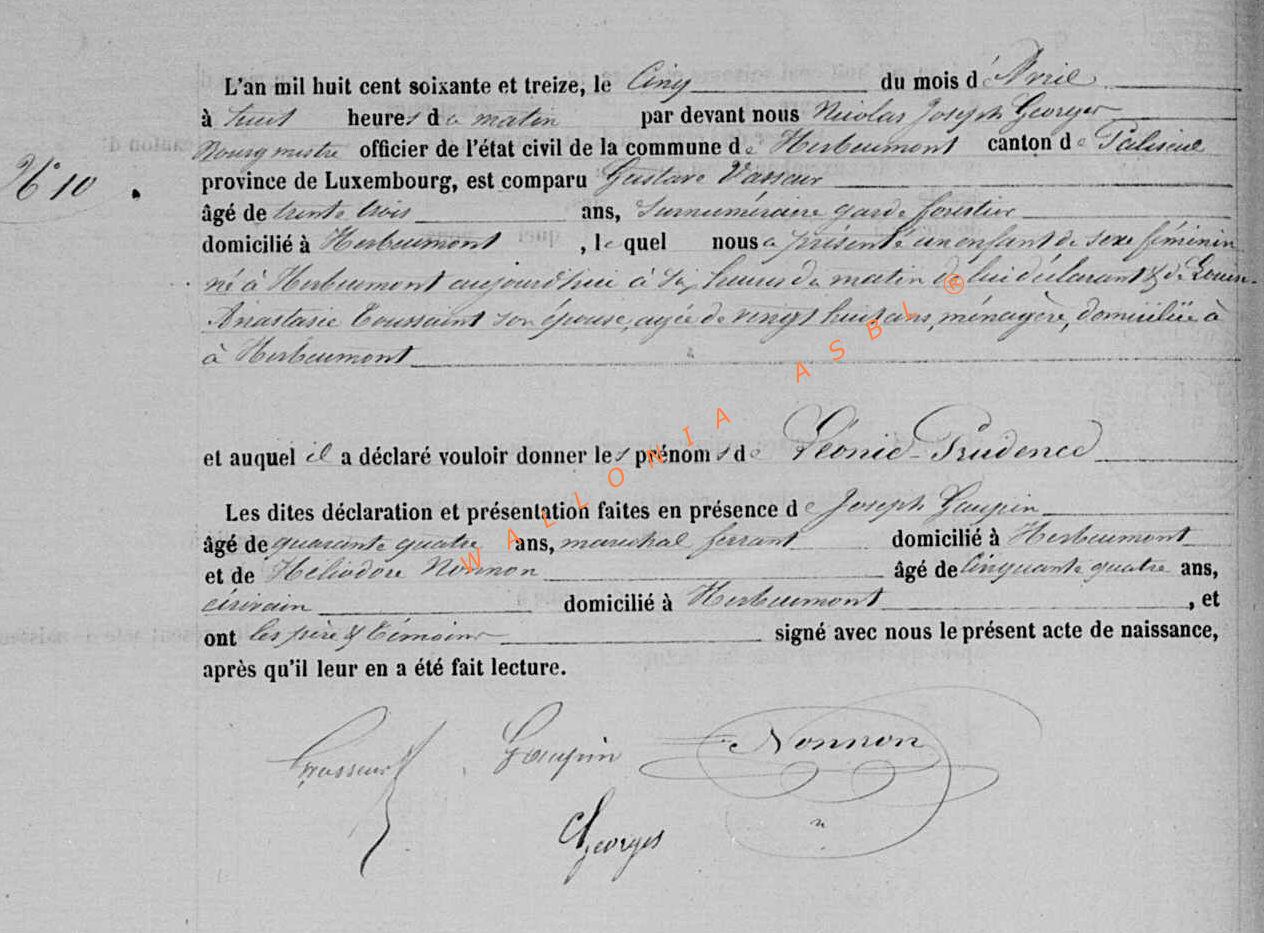 L'an mil huit cent soixante et treize, le Cinq du mois d'Avril
à huit heures du matin par devant nous Nicolas Joseph Georges
Bourgmestre officier de l'état civil de la commune de Herbeumont canton de Paliseul
N° 10
province de Luxembourg, est comparu Gustave Vasseur
âgé de trente trois ans, surnuméraire garde forestier
domicilié à Herbeumont, le quel nous a présenté un enfant de sexe féminin
né à Herbeumont aujourd'hui à six heures du matin de lui déclarant & de Louise-
Anastasie Toussaint son épouse, agée de vingt huit ans, ménagère, domiciliée à
à Herbeumont
et auquel il a déclaré vouloir donner les prénoms de Léonie-Prudence
Les dites déclaration et présentation faites en présence de Joseph Gaupin
âgé de quarante quatre ans, maréchal ferrant domicilié à Herbeumont
et de Héliodore Nonnon âgé de Cinquante quatre ans,
écrivain domicilié à Herbeumont, et
ont les père & témoins signé avec nous le présent acte de naissance,
après qu'il leur en a été fait lecture.
Gaupin Nonnon
Georges
WALLONIA ASBL ®